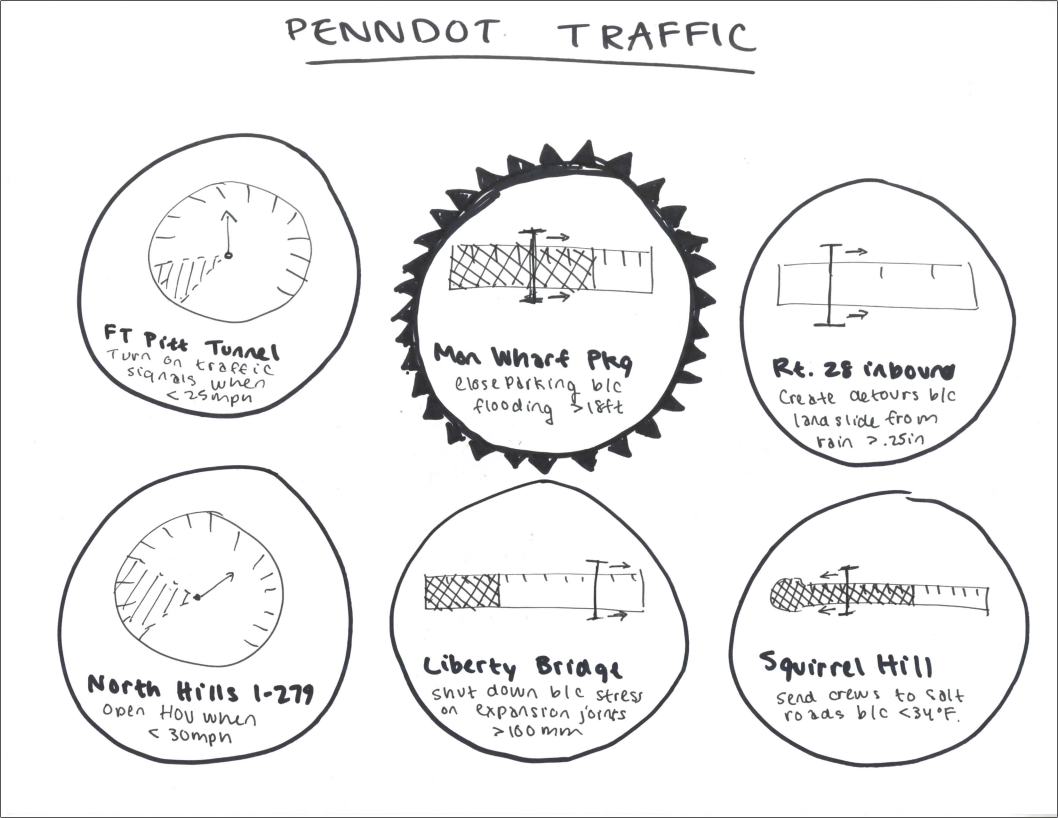 PENNDOT TRAFFIC
FT Pitt Tunnel
Turn on traffic
signals when
< 25mph
Mon Wharf Pkg
Close Parking b/c
flooding >18ft
Rt. 28 inbound
Create detours b/c
landslide from
rain > .25in
North Hills I-279
open HOV when
< 30mph
Liberty Bridge
shut down b/c stress
on expansion joints
>100mm
Squirrel Hill
send crews to salt
roads b/c <34°F.